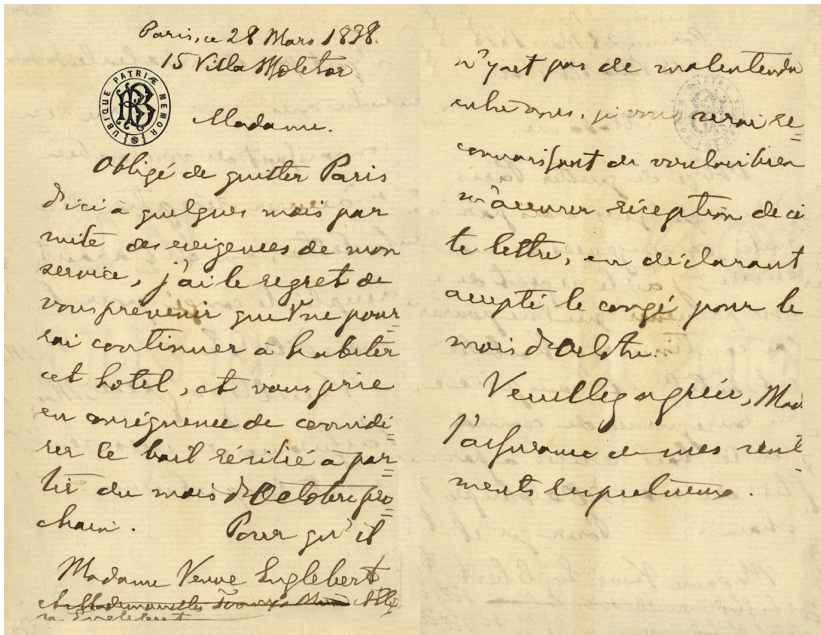 Paris, ce 28 Mars 1898.
15 Villa Molitor
UBIQUE PATRIÆ MEMOR
Madame.
Obligé de quitter Paris
d'ici à quelques mois par
suite des exigences de mon
service, j'ai le regret de
vous prévenir que je ne pour=
rai continuer à habiter
cet hotel, et vous prie
en conséquence de considé=
rer le bail résilié à par=
tir du mois d'Octobre pro=
chain.
Pour qu'il
Madame Veuve Englebert
et Mademoiselles
Englebert
n'y ait pas de malentendu
entre nous, je vous serai re=
connaissant de vouloir bien
m'accuser réception de ce
te lettre, en déclarant
accepté le congé pour le
mois d'Octobre.
Veuillez agréer, Mad
l'assurance de mes senti
ments respectueux.